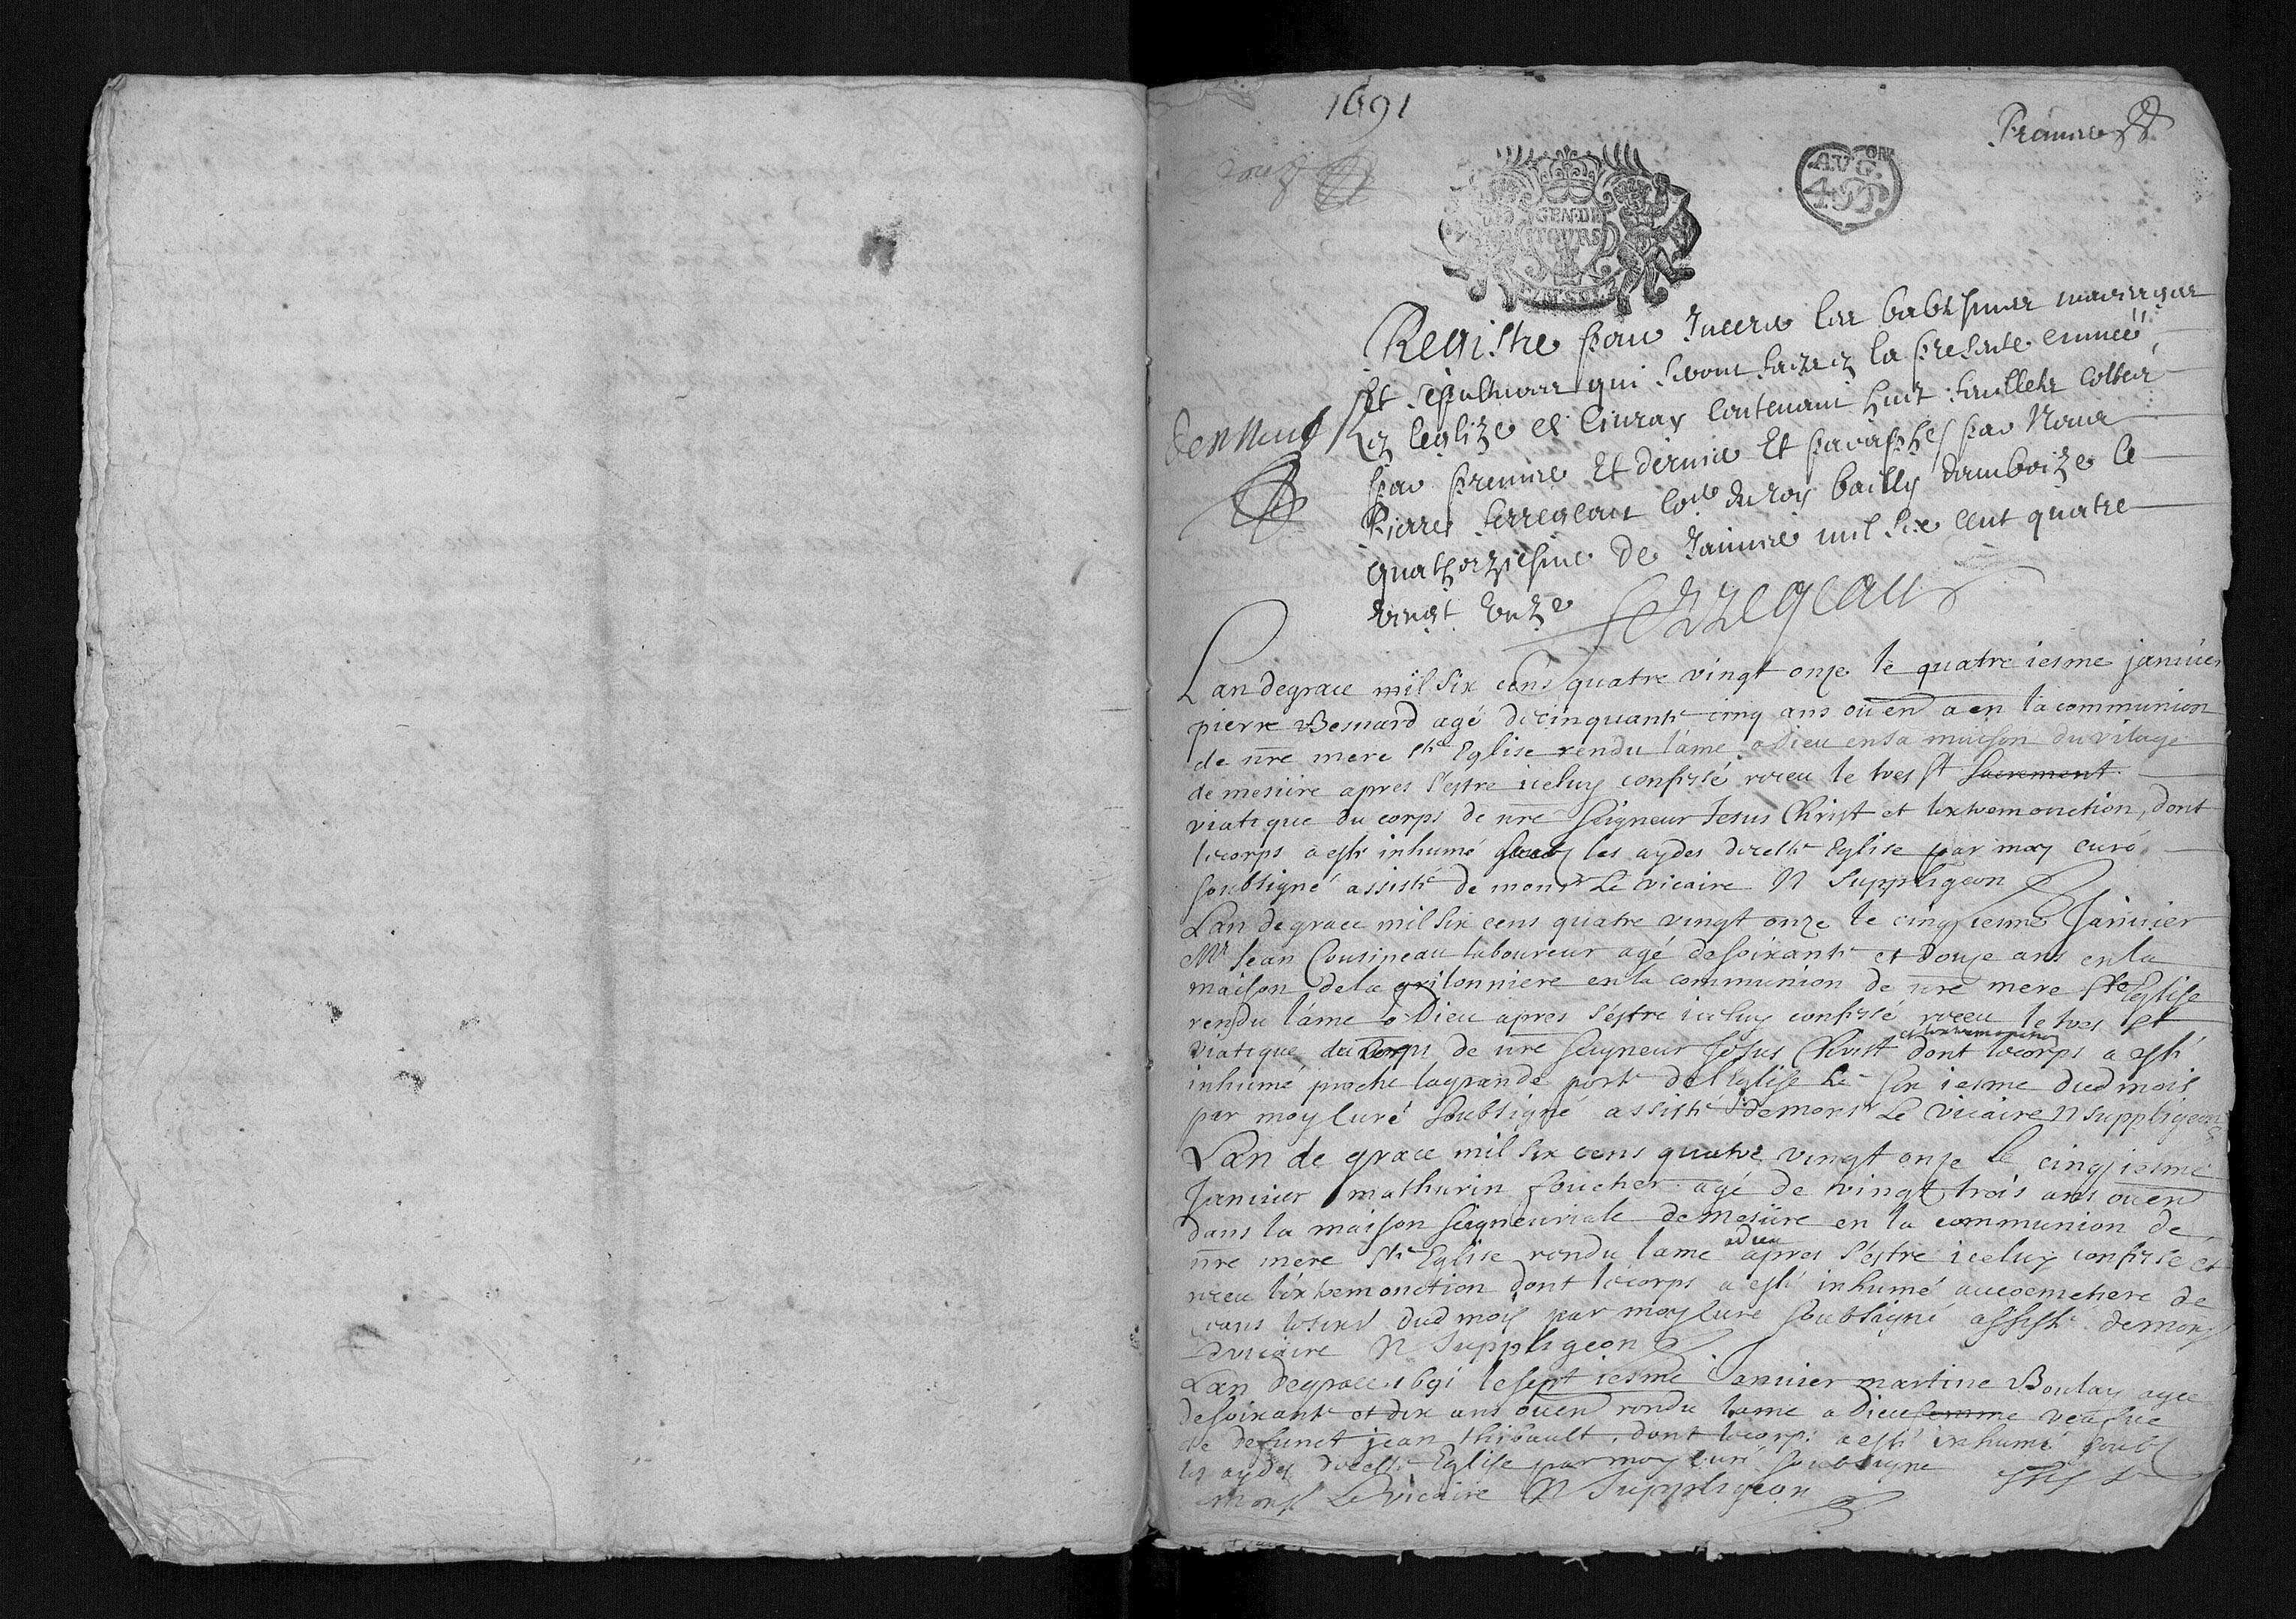 1691
Premier
AVG.ON
4.D.
GEN.DE
TOURS
Registre pour Inserer les babtesmes mariages
Et sepultures qui seront faizes en la presente année
En leglize de Civray Contenant huit feuillets Cottez
par premier Et dernier Et paraphes par Nous
Pierre ferregeau Coner du roy bailly damboize le
quatorziesme de Janvier mil six cent quatre
vingt onze ferregeau
Lan de grace mil six cens quatre vingt onze le quatre iesme janvier
pierre Besnard agé de cinquante cinq ans ou en a en la communion
de nre mere ste Eglise rendu l'ame a Dieu en sa maison du vilage
de mesure apres s'estre iceluy confessé receu le tres st Sacrement
viatique du corps de nre Seigneur Jesus Christ et lextremonction, dont
le corps a esté inhumé soubs les aydes dicelle Eglise par moy curé
soubsigné assisté de monsr Le vicaire N Suppligeon
Lan de grace mil six cens quatre vingt onze le cinquiesme Janvier
Mr Jean Cousineau laboureur agé de soixante et douze ans en la
maison de la grilonniere en la communion de nre mere Ste Eglise
rendu l'ame a Dieu apres s'estre iceluy confessé receu le tres st
et lextremonction
viatique du corps de nre Seigneur Jesus Christ dont le corps a esté
inhumé proche la grande porte de l'Eglise le six iesme dud mois
par moy curé soubsigné assisté de monsr Le vicaire N Suppligeon
Lan de grace mil six cens quatre vingt onze le cinqiesme
Janvier mathurin foucher agé de vingt trois ans ou en
dans la maison seigneuriale de Mesure en la communion de
adieu
nre mere Ste Eglise rendu lame apres s'estre iceluy confessé et
receu lextremonction dont le corps a esté inhumé au cemetiere de
ceans dud mois par moy curé soubsigné assisté de mons
Le vicaire N Suppligeon
Lan de grace 1691 le sept iesme Janvier martine Boulay agee
de soixante et dix ans ou en rendu lame a Dieu femme veufue
de defunct jean thibault, dont le corps a esté inhumé soubs
les aydes dicelle Eglise par moy curé soubsigné
monsr Le vicaire N Suppligeon